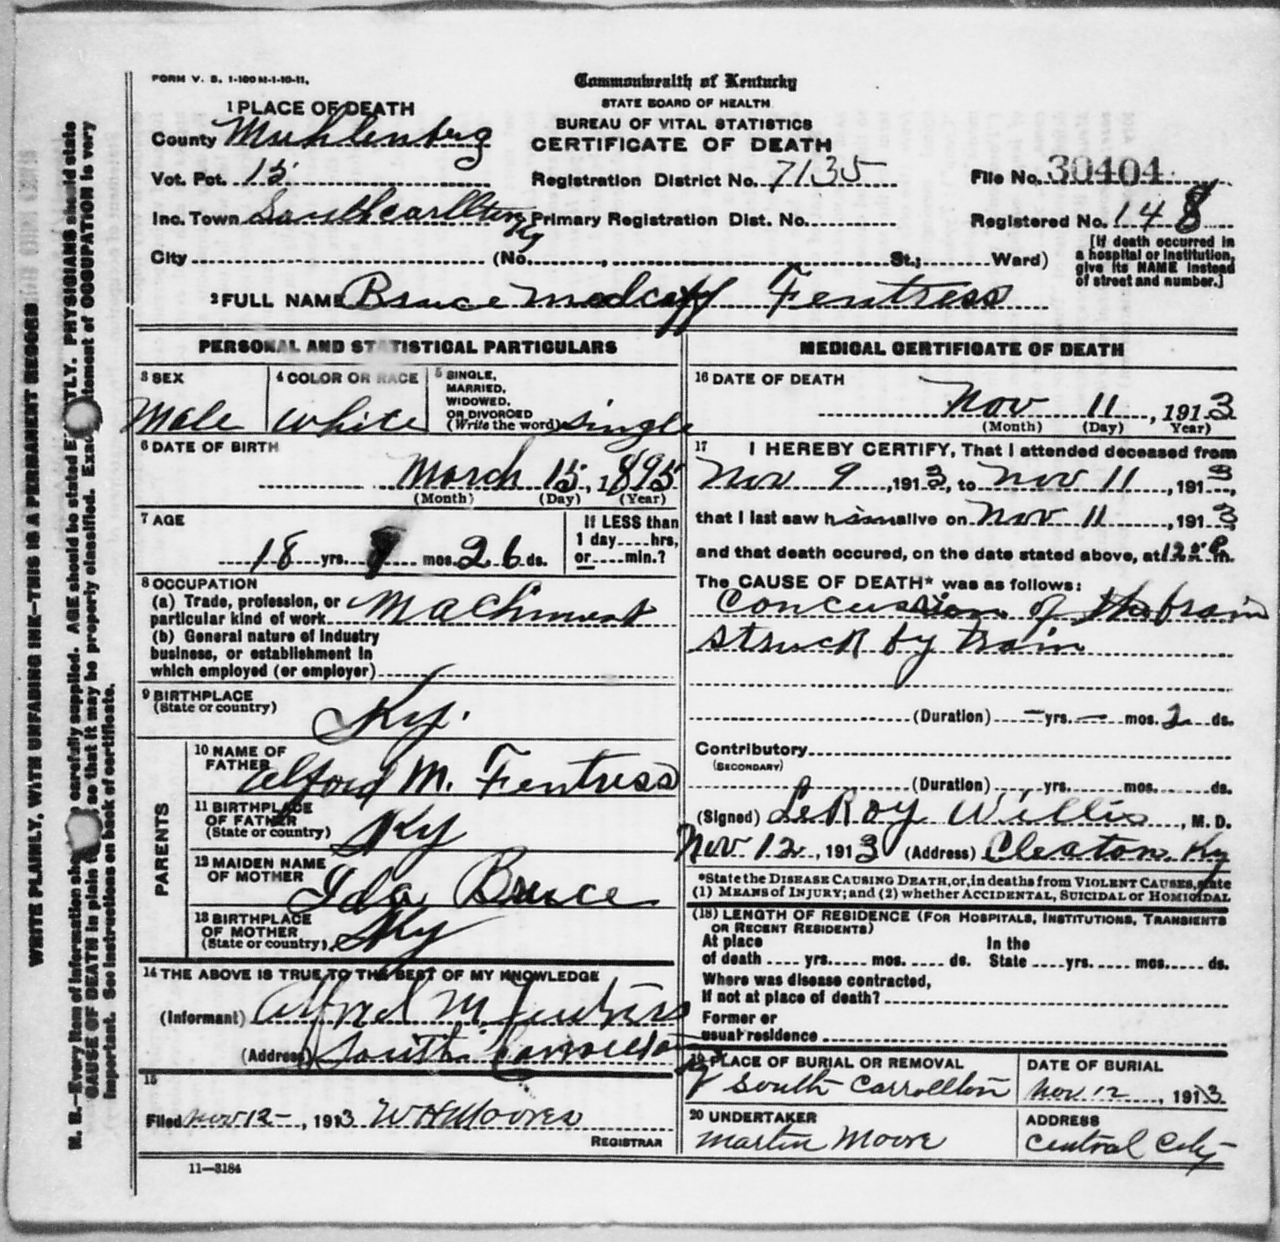 FORM V. S. 1-100 M-1-10-11.
Commonwealth of Kentucky
STATE BOARD OF HEALTH
BUREAU OF VITAL STATISTICS
CERTIFICATE OF DEATH
1 PLACE OF DEATH
County Muhlenberg
Vot. Pct. 15 Registration District No. 7135 File No. 30404
Inc. Town Southcarllton Ky Primary Registration Dist. No. Registered No. 148
City (No. , St.; Ward)
[If death occurred in
a hospital or institution,
give its NAME instead
of street and number.]
2 FULL NAME Bruce Medcaff Fentress
PERSONAL AND STATISTICAL PARTICULARS
3 SEX
Male
4 COLOR OR RACE
white
5 SINGLE,
MARRIED,
WIDOWED,
OR DIVORCED
(Write the word) single
6 DATE OF BIRTH
March 15, 1895
(Month) (Day) (Year)
7 AGE
18 yrs. mos. 26 ds.
If LESS than
1 day hrs,
or min.?
8 OCCUPATION
(a) Trade, profession, or
particular kind of work Machinest
(b) General nature of industry
business, or establishment in
which employed (or employer)
9 BIRTHPLACE
(State or country)
Ky.
PARENTS
10 NAME OF
FATHER Alford M. Fentress
11 BIRTHPLACE
OF FATHER
(State or country) Ky
12 MAIDEN NAME
OF MOTHER Ida Bruce
13 BIRTHPLACE
OF MOTHER
(State or country) Ky
14 THE ABOVE IS TRUE TO THE BEST OF MY KNOWLEDGE
(Informant) Alfred M. Fentress
(Address) South Carrollton
15
Filed Nov 12-, 1913 W H Moores
REGISTRAR
11-3184
MEDICAL CERTIFICATE OF DEATH
16 DATE OF DEATH
Nov 11, 1913
(Month) (Day) Year)
17 I HEREBY CERTIFY, That I attended deceased from
Nov 9, 1913, to Nov 11, 1913,
that I last saw him alive on Nov 11, 1913
and that death occured, on the date stated above, at m.
The CAUSE OF DEATH* was as follows:
Concussion of the brain
struck by train
(Duration) — yrs. — mos. 2 ds.
Contributory
(SECONDARY)
(Duration) yrs. mos. ds.
(Signed) LeRoy Willis, M. D.
Nov 12, 1913 (Address) Cleaton Ky
*State the DISEASE CAUSING DEATH, or, in deaths from VIOLENT CAUSES, state
(1) MEANS of INJURY; and (2) whether ACCIDENTAL, SUICIDAL or HOMICIDAL
(18) LENGTH OF RESIDENCE (FOR HOSPITALS, INSTITUTIONS, TRANSIENTS
OR RECENT RESIDENTS)
At place
of death yrs. mos. ds.
In the
State yrs. mos. ds.
Where was disease contracted,
If not at place of death?
Former or
usual residence
19 PLACE OF BURIAL OR REMOVAL
South Carrollton
DATE OF BURIAL
Nov. 12, 1913
20 UNDERTAKER
Martin Moore
ADDRESS
Central City
WRITE PLAINLY, WITH UNFADING INK—THIS IS A PERMANENT RECORD
N. B.—Every item of information should be carefully supplied. AGE should be stated EXACTLY. PHYSICIANS should state
CAUSE OF DEATH in plain so that it may be properly classified. Exact statement of OCCUPATION is very
important. See instructions on back of certificate.